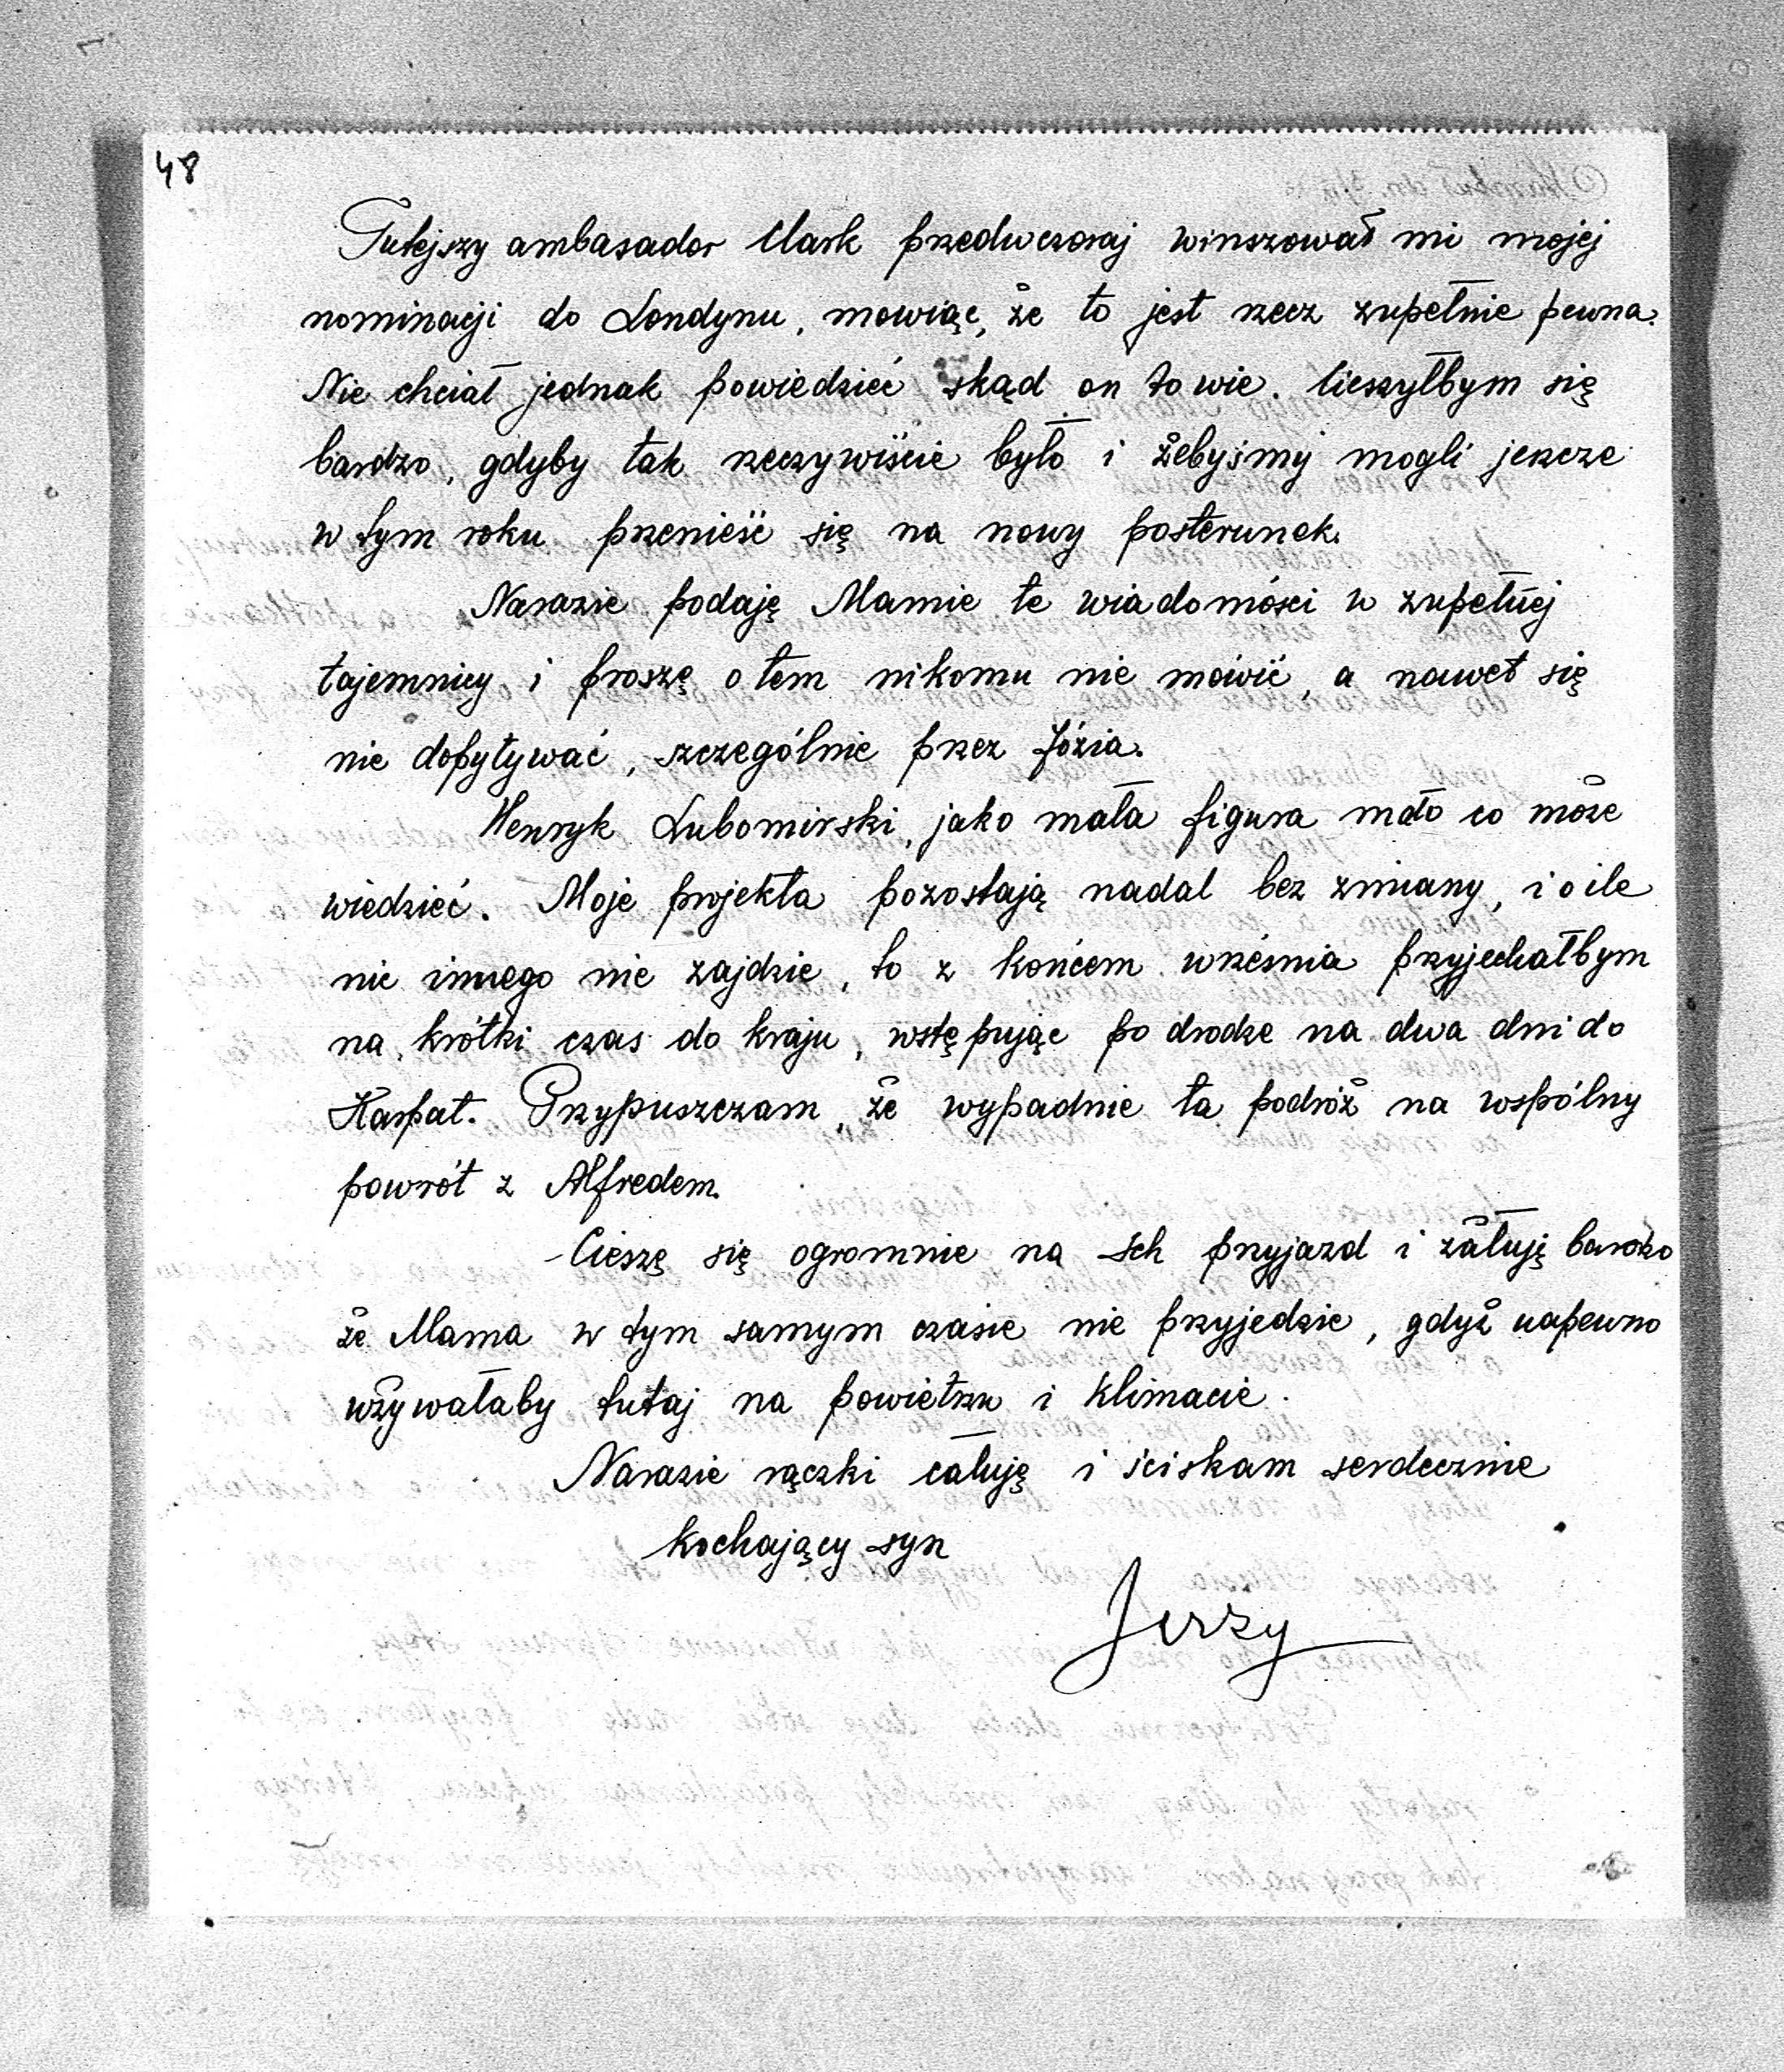 48
Tutejszy ambasador Clark przedwczoraj winszował mi mojej
nominacji do Londynu, mowiąc, że to jest rzecz zupełnie pewna.
Nie chciał jednak powiedzieć skąd on to wie. Cieszyłbym się
bardzo, gdyby tak rzeczywiście było i żebyśmy mogli jeszcze
w tym roku przenieść się na nowy posterunek.
Narazie podaję Mamie te wiadomości w zupełnej
tajemnicy i proszę o tem nikomu nie mówić, a nawet się
nie dopytywać, szczególnie przez Józia.
Henryk Lubomirski, jako mała figura mało co może
wiedzieć. Moje projekta pozostają nadal bez zmiany, i o ile
nic innego nie zajdzie, to z końcem września przyjechałbym
na krótki czas do kraju, wstępując po drodze na dwa dni do
Karpat. Przypuszczam, że wypadnie ta podróż na wspólny
powrót z Alfredem.
- Cieszę się ogromnie na Ich przyjazd i żałuję bardzo
że Mama w tym samym czasie nie przyjedzie, gdyż napewno
używałaby tutaj na powietrzu i klimacie.
Narazie rączki całuję i ściskam serdecznie
kochający syn
Jerzy